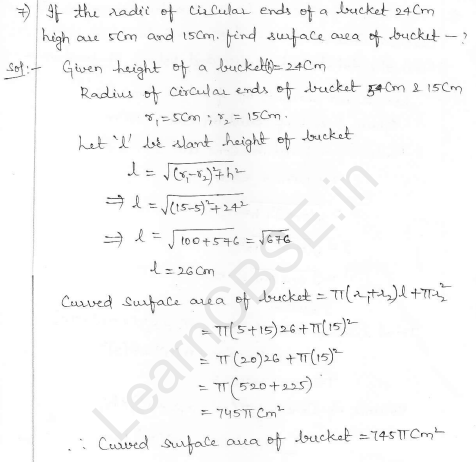 7) If the radii of circular ends of a bucket 24cm
high are 5cm and 15cm. find surface area of bucket - ?
Sol:- Given height of a bucket(h)= 24cm
Radius of circular ends of bucket 5cm & 15cm
r₁=5cm ; r₂ = 15cm.
Let 'l' be slant height of bucket
l = √(r₁-r₂)²+h²
⇒ l = √(15-5)²+24²
⇒ l = √100+576 = √676
l = 26cm
Curved surface area of bucket = π(r₁+r₂)l+πr₂²
= π(5+15)26+π(15)²
= π(20)26 +π(15)²
= π(520+225)
= 745π cm²
∴ Curved surface area of bucket = 745π cm²
LearnCBSE.in